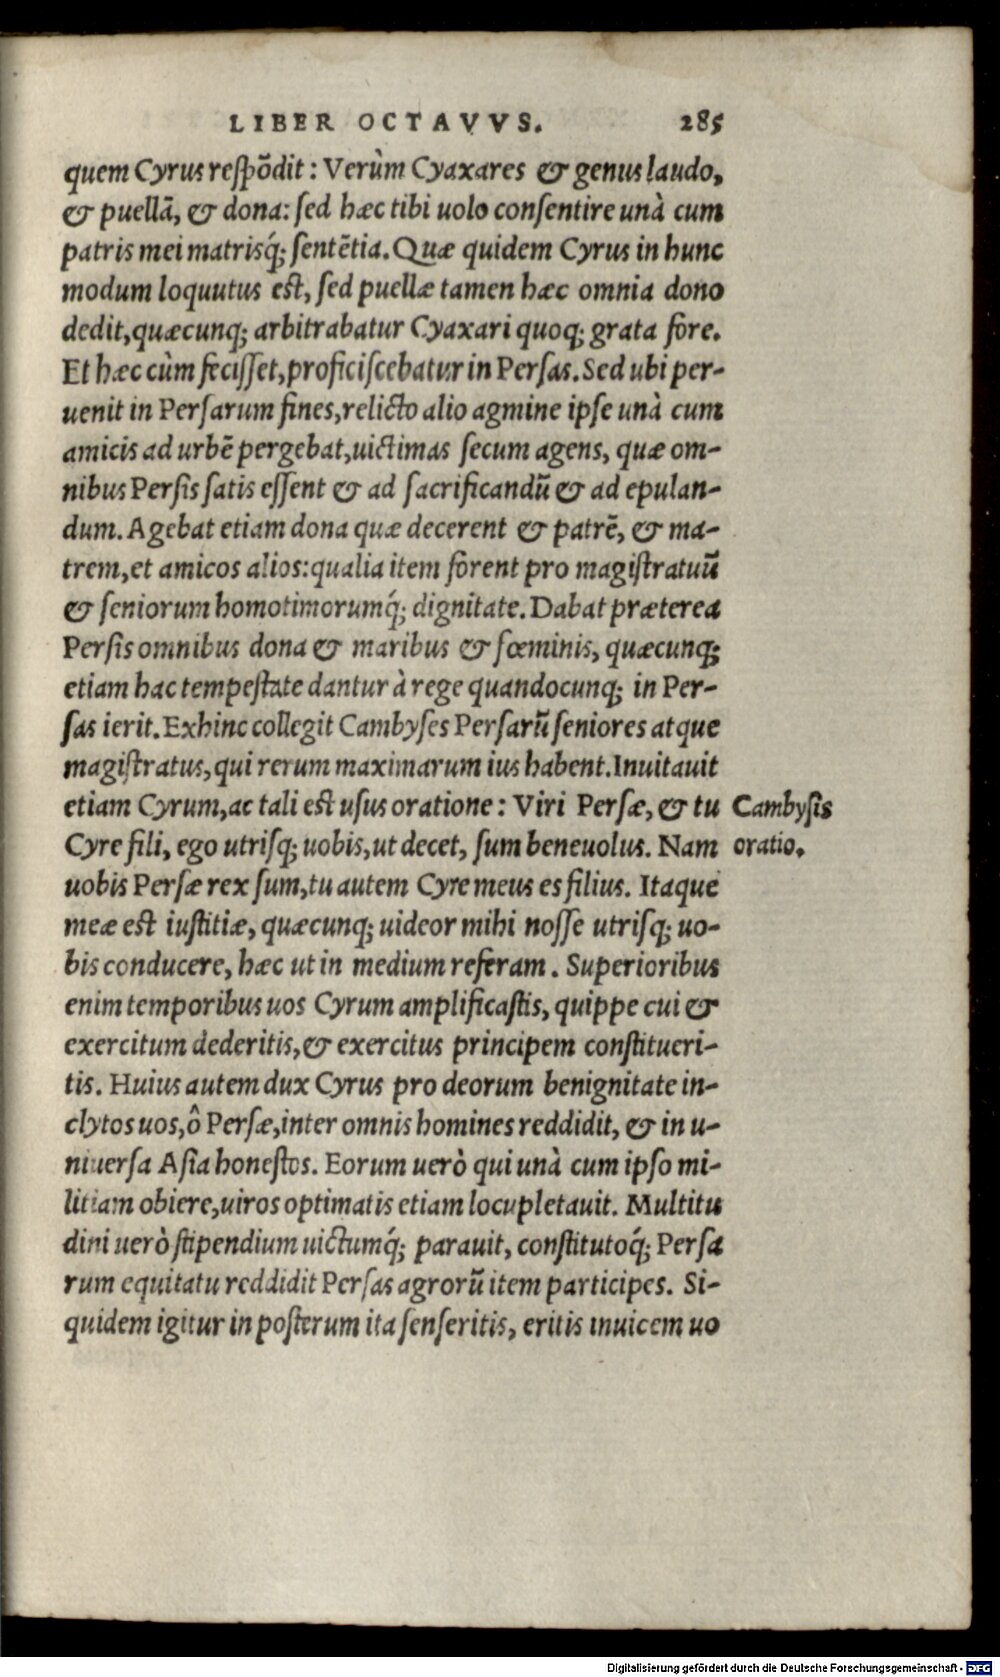 LIBER OCTAVVS. 285
quem Cyrus respõdit: Verùm Cyaxares & genus laudo,
& puellã, & dona: sed hæc tibi uolo consentire unà cum
patris mei matrisq́; sentẽtia. Quæ quidem Cyrus in hunc
modum loquutus est, sed puellæ tamen hæc omnia dono
dedit, quæcunq; arbitrabatur Cyaxari quoq; grata fore.
Et hæc cùm fecisset, proficiscebatur in Persas. Sed ubi per-
uenit in Persarum fines, relicto alio agmine ipse unà cum
amicis ad urbẽ pergebat, uictimas secum agens, quæ om-
nibus Persis satis essent & ad sacrificandũ & ad epulan-
dum. Agebat etiam dona quæ decerent & patrẽ, & ma-
trem, et amicos alios: qualia item forent pro magistratuũ
& seniorum homotimorumq́; dignitate. Dabat præterea
Persis omnibus dona & maribus & fœminis, quæcunq;
etiam hac tempestate dantur à rege quandocunq; in Per-
sas ierit. Exhinc collegit Cambyses Persarũ seniores atque
magistratus, qui rerum maximarum ius habent. Inuitauit
etiam Cyrum, ac tali est usus oratione: Viri Persæ, & tu
Cyre fili, ego utrisq; uobis, ut decet, sum beneuolus. Nam
uobis Persæ rex sum, tu autem Cyre meus es filius. Itaque
meæ est iustitiæ, quæcunq; uideor mihi nosse utrisq; uo-
bis conducere, hæc ut in medium referam. Superioribus
enim temporibus uos Cyrum amplificastis, quippe cui &
exercitum dederitis, & exercitus principem constitueri-
tis. Huius autem dux Cyrus pro deorum benignitate in-
clytos uos, ô Persæ, inter omnis homines reddidit, & in u-
niuersa Asia honestos. Eorum uerò qui unà cum ipso mi-
litiam obiere, uiros optimatis etiam locupletauit. Multitu
dini uerò stipendium uictumq́; parauit, constitutoq́; Persa
rum equitatu reddidit Persas agrorũ item participes. Si-
quidem igitur in posterum ita senseritis, eritis inuicem uo
Cambysis
oratio.
Digitalisierung gefördert durch die Deutsche Forschungsgemeinschaft - DFG